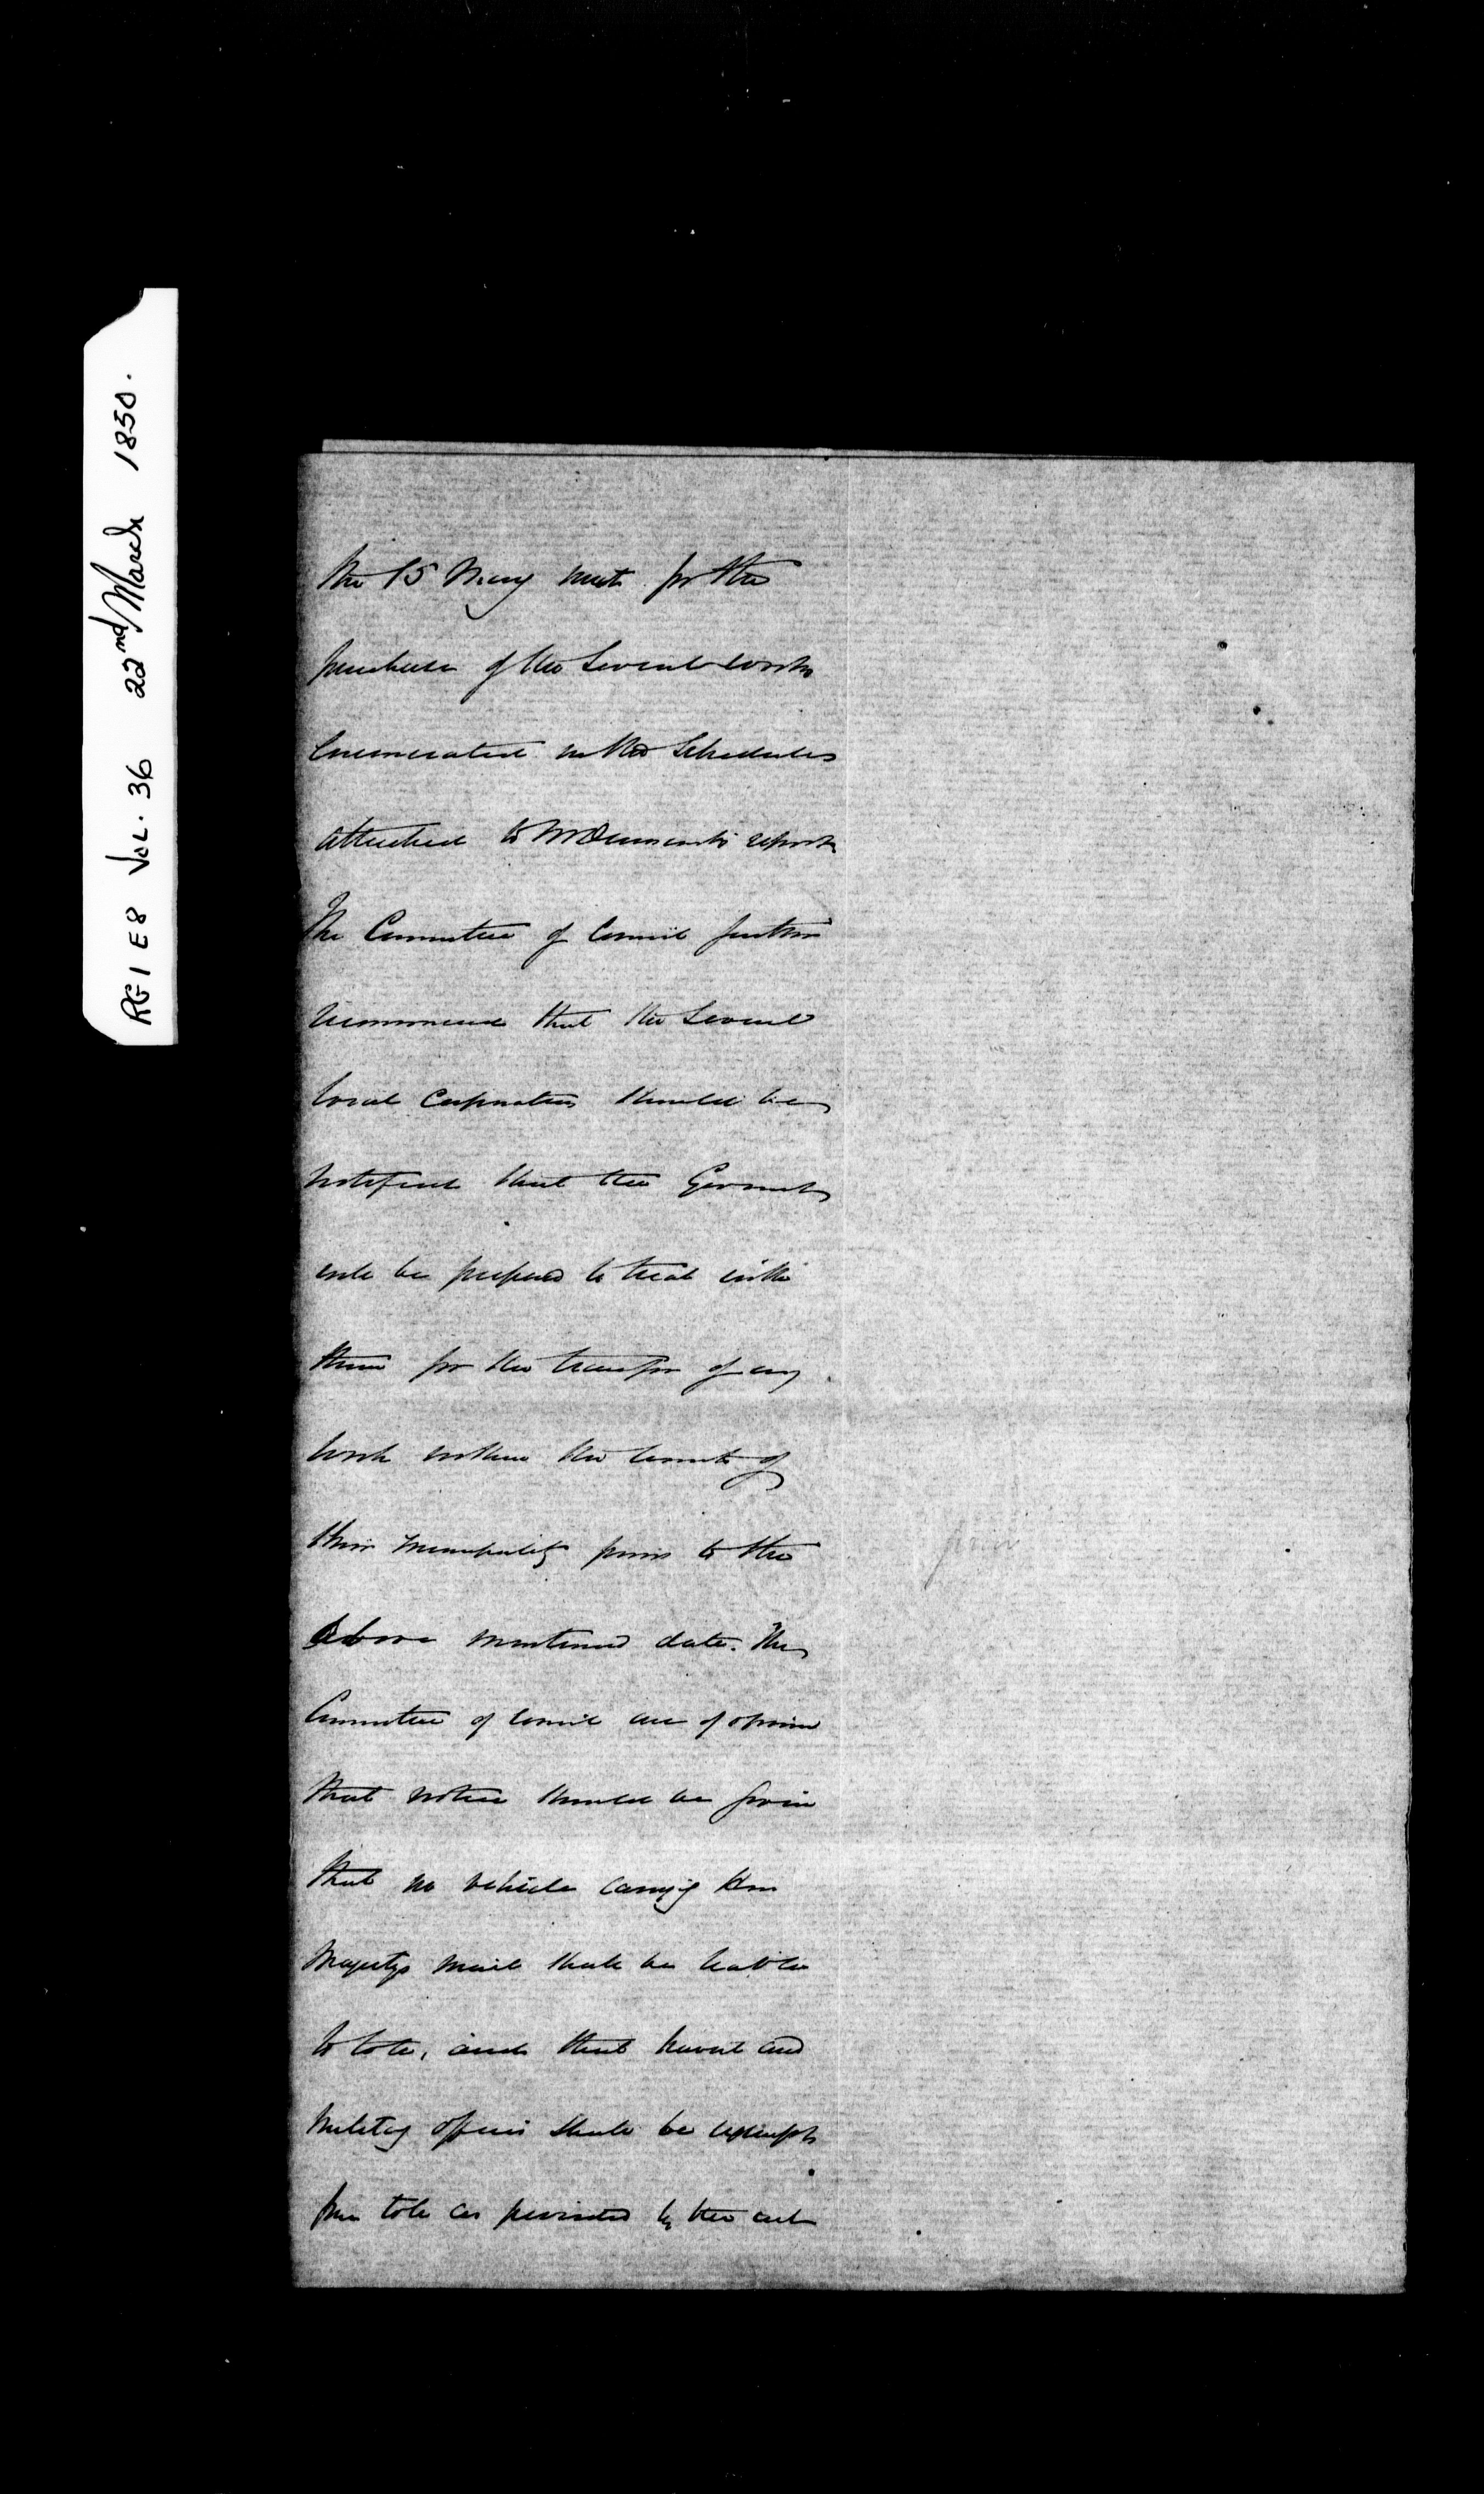 RG1 E8 VOL. 36 22nd March 1850.
the 15 May next for the
purchase of the several works
enumerated in the Schedules
attached to report
The Committee of Council further
recommend that the several
local Corporations should be
notified that the Governmt
will be prepared to treat with
them for the transfer of any
work within the limits of
their municipality prior to the
above mentioned date. The
Committee of Council are of opinion
that notice should be given
that no vehicle carryig Her
Majestys mail shall be liable
to tolls, and that Naval and
Military officers shall be exempt
from tolls as provided by the act